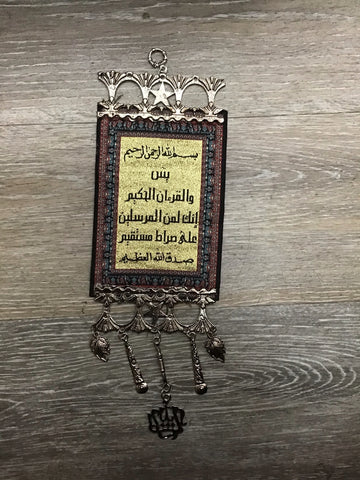 بسم الله الرحمن الرحيم
يس
والقرءان الحكيم
إنك لمن المرسلين
على صراط مستقيم
صدق الله العظيم